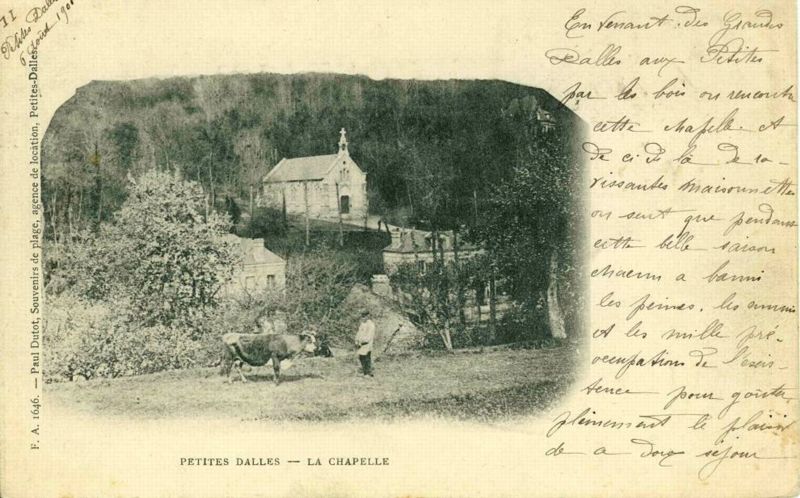 II
Petites Dalles
6 Août 190
F. A. 1646. — Paul Dutot, Souvenirs de plage, agence de location, Petites-Dalles.
En venant des Grandes
Dalles aux Petites
par les bois on rencontre
cette chapelle. Et
de ci de là de ra-
vissantes maisonnettes
on sent que pendant
cette belle saison
chacun a banni
les peines, les ennuis
et les mille pré-
occupations de l'exis-
tence pour goûter
pleinement le plaisir
de a doux séjour
PETITES DALLES — LA CHAPELLE